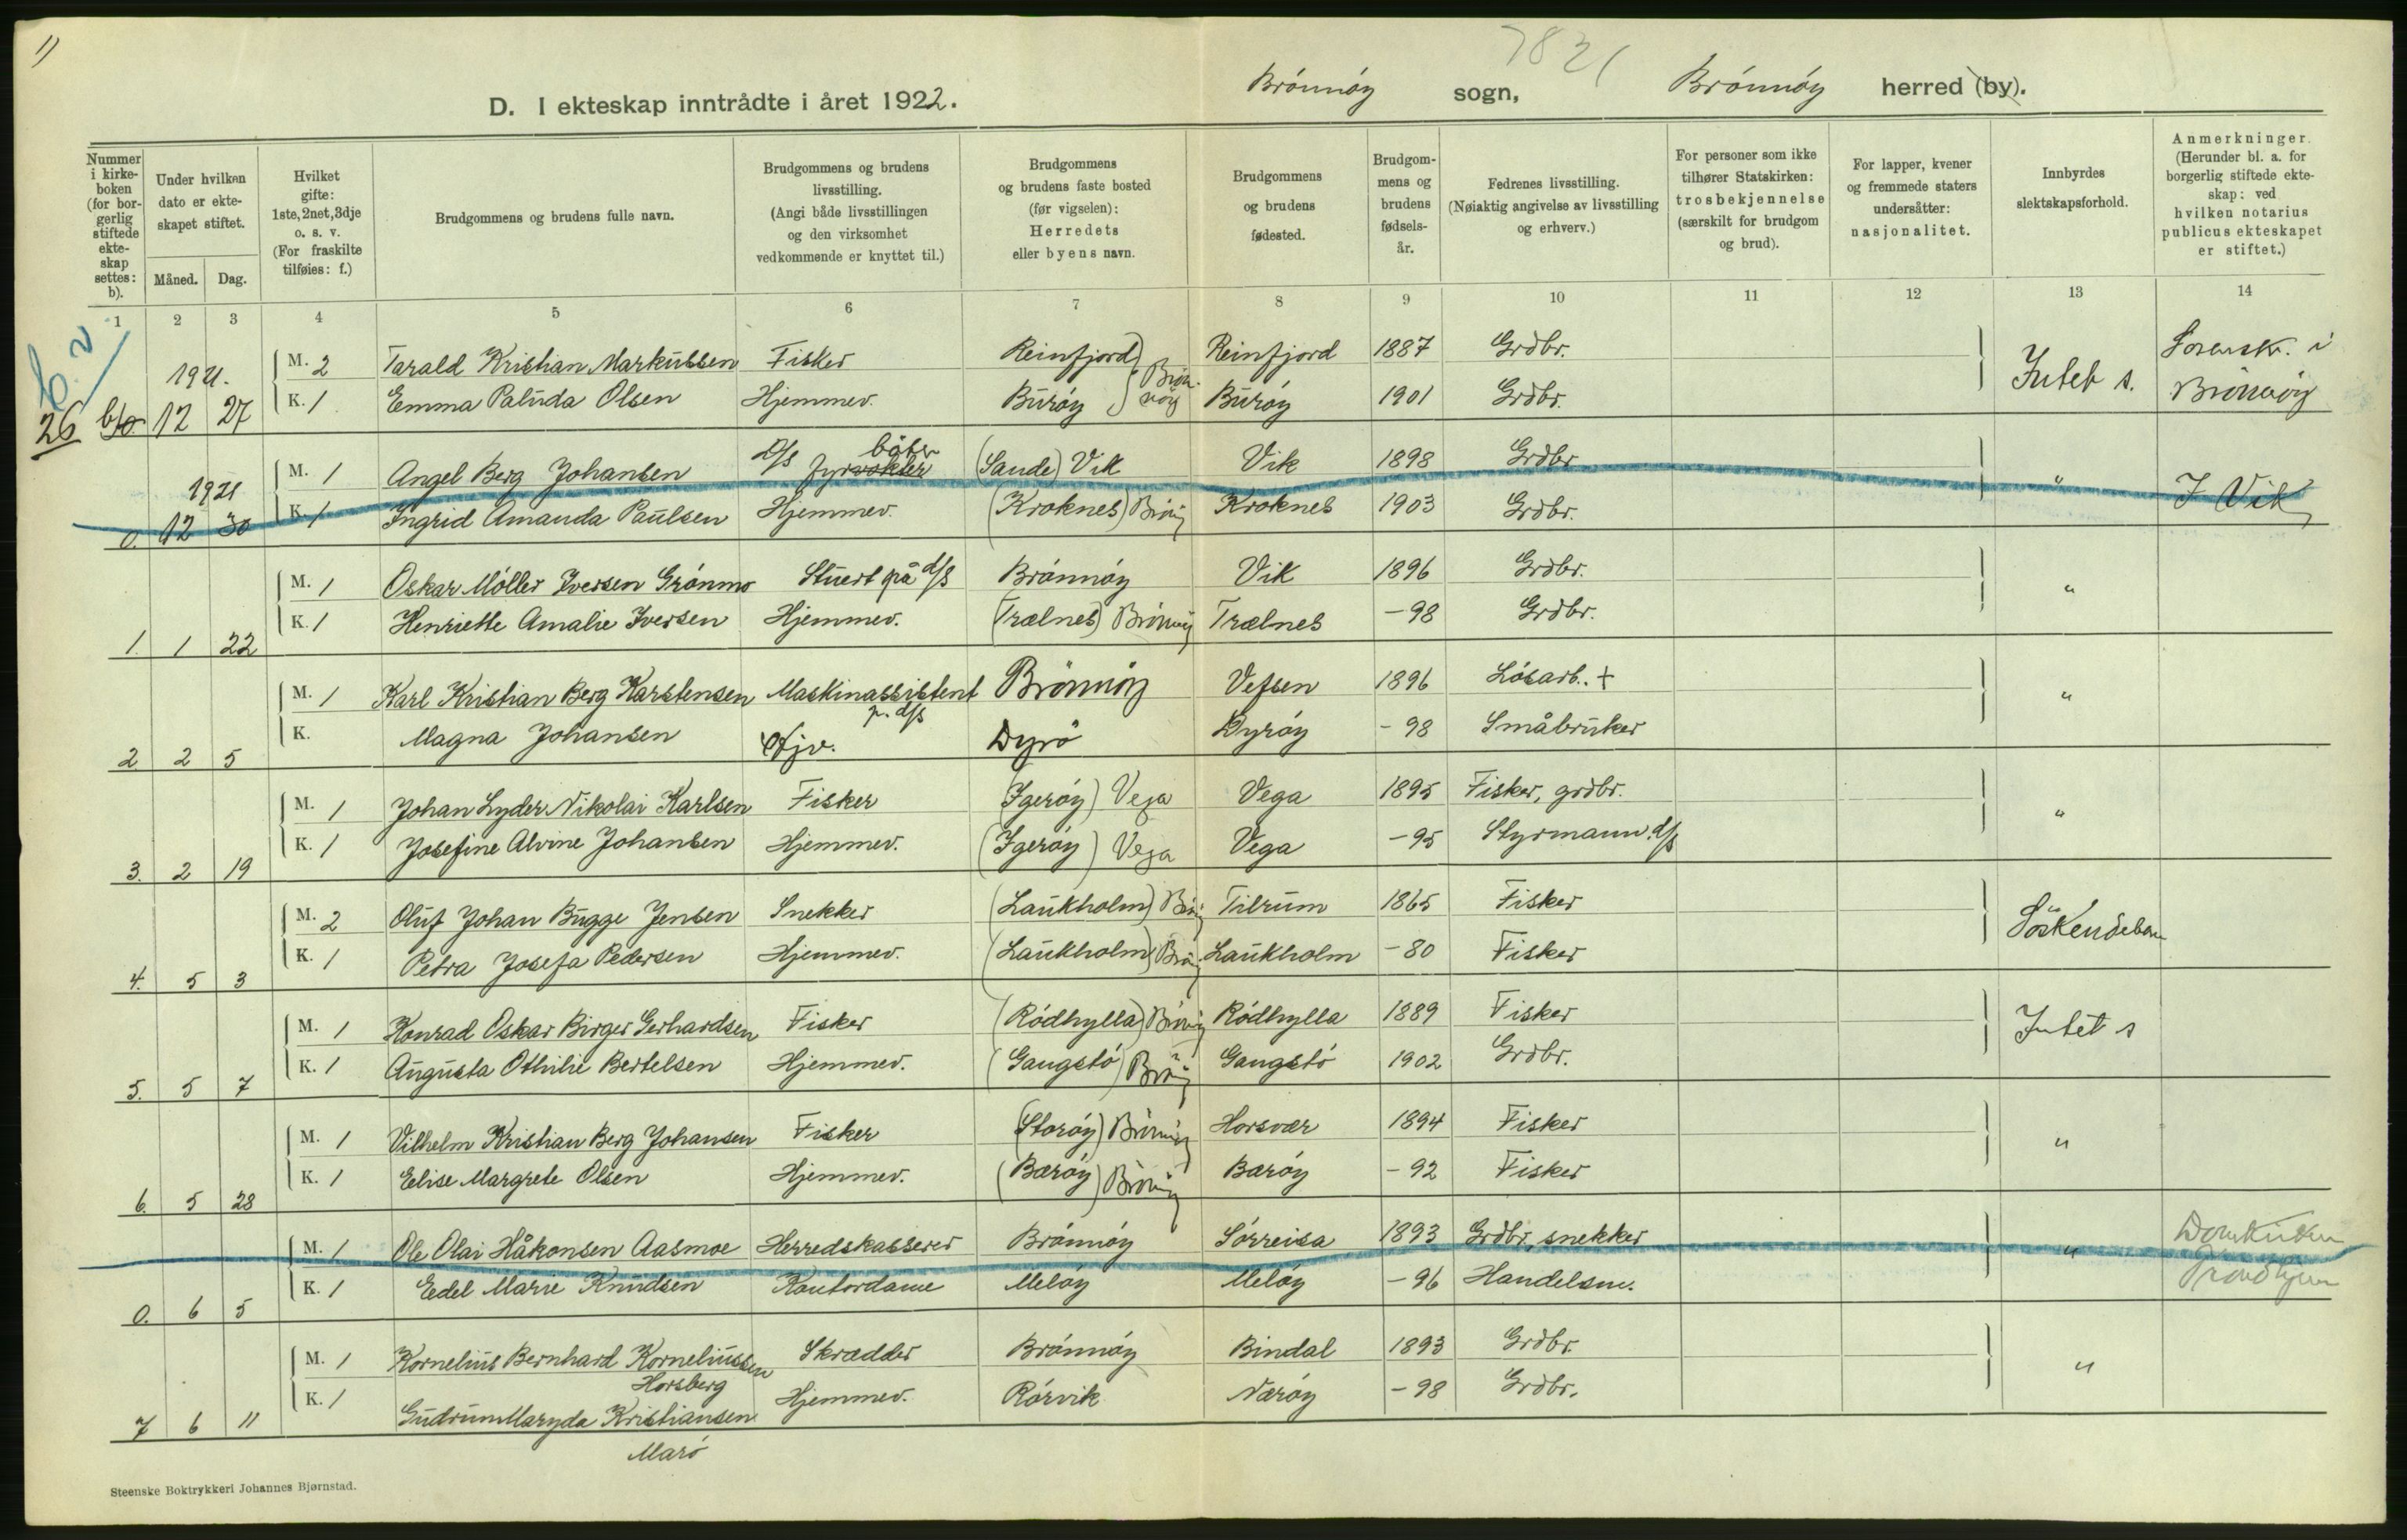 1)
7821
D. I ekteskap inntrådte i året 1922.
Brönnöy sogn, Brönnöy herred (by).
Nummer i kirkeboken (for borgerlig stiftede ekteskap settes: b).
Under hvilken dato er ekteskapet stiftet.
Måned. Dag.
Hvilket gifte: 1ste, 2net, 3dje o. s. v. (For fraskilte tilføies: f.)
Brudgommens og brudens fulle navn.
Brudgommens og brudens livsstilling. (Angi både livsstillingen og den virksomhet vedkommende er knyttet til.)
Brudgommens og brudens faste bosted (før vigselen): Herredets eller byens navn.
Brudgommens og brudens fødested.
Brudgommens og brudens fødselsår.
Fedrenes livsstilling. (Nøiaktig angivelse av livsstilling og erhverv.)
For personer som ikke tilhører Statskirken: trosbekjennelse (særskilt for brudgom og brud).
For lapper, kvener og fremmede staters undersåtter: nasjonalitet.
Innbyrdes slektskapsforhold.
Anmerkninger. (Herunder bl. a. for borgerlig stiftede ekteskap: ved hvilken notarius publicus ekteskapet er stiftet.)
1 2 3 4 5 6 7 8 9 10 11 12 13 14
1921. M. 2 Tarald Kristian Markussen Fisker Reinfjord Reinfjord 1887 Grdbr. Intet s. Sorenskr. i
26 12 27 K. 1 Emma Paluda Olsen Hjemmev. Buröy Brönnöy Buröy 1901 Grdbr. Brönnöy
1921 M. 1 Angel Berg Johansen D/s fyrvokter böter (Sande) Vik Vik 1898 Grdbr. " I Vik
0. 12 30 K. 1 Ingrid Amanda Paulsen Hjemmev. (Kroknes) Brönnöy Kroknes 1903 Grdbr.
M. 1 Oskar Möller Iversen Grönmo Stuert på d/s Brönnöy Vik 1896 Grdbr. "
1. 1 22 K. 1 Henriette Amalie Iversen Hjemmev. (Trælnes) Brönnöy Trælnes -98 Grdbr.
M. 1 Karl Kristian Berg Karstensen Maskinassistent p. d/s Brönnöy Vefsen 1896 Lösarb. + "
2 2 5 K. Magna Johansen Hjv. Dyrö Dyröy -98 Småbruker
M. 1 Johan Lyder Nikolai Karlsen Fisker (Igeröy) Vega Vega 1895 Fisker, grdbr. "
3. 2 19 K. 1 Josefine Alvine Johansen Hjemmev. (Igeröy) Vega Vega -95 Styrmann d/s
M. 2 Oluf Johan Bugge Jensen Snekker (Laukholm) Brönnöy Tilrum 1865 Fisker Söskendebarn
4. 5 3 K. 1 Petra Josefa Pedersen Hjemmev. (Laukholm) Brönnöy Laukholm -80 Fisker
M. 1 Konrad Oskar Birger Gerhardsen Fisker (Rödhylla) Brönnöy Rödhylla 1889 Fisker Intet s
5. 5 7 K. 1 Augusta Othilie Bertelsen Hjemmev. (Gangstö) Brönnöy Gangstö 1902 Grdbr.
M. 1 Vilhelm Kristian Berg Johansen Fisker (Storöy) Brönnöy Horsvær 1894 Fisker "
6. 5 28 K. 1 Elise Margrete Olsen Hjemmev. (Bæröy) Brönnöy Bæröy -92 Fisker
M. 1 Ole Olai Håkonsen Aasmoe Herredskasserer Brönnöy Sörreisa 1893 Grdbr, snekker " Domkirken
0. 6 5 K. 1 Edel Marie Knudsen Kontordame Melöy Melöy -96 Handelsm. Trondhjem
M. 1 Kornelius Bernhard Korneliussen Horsberg Skrædder Brönnöy Bindal 1893 Grdbr. "
7 6 11 K. 1 Gudrun Maryda Kristiansen Marö Hjemmev. Rörvik Næröy -98 Grdbr.
Steenske Boktrykkeri Johannes Bjørnstad.